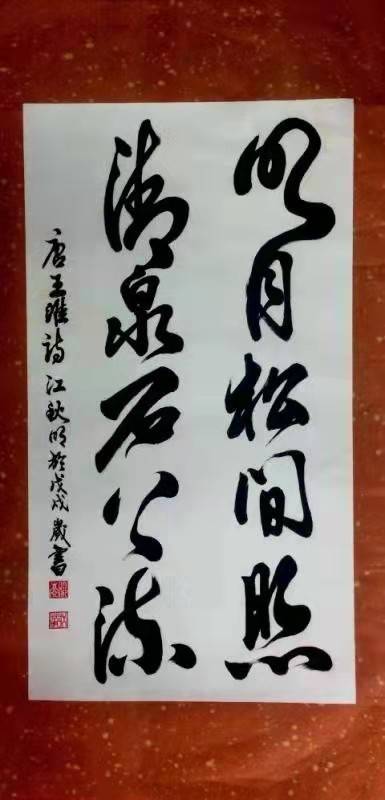 明月松间照
清泉石上流
唐王维诗 江秋明於戊戌岁書